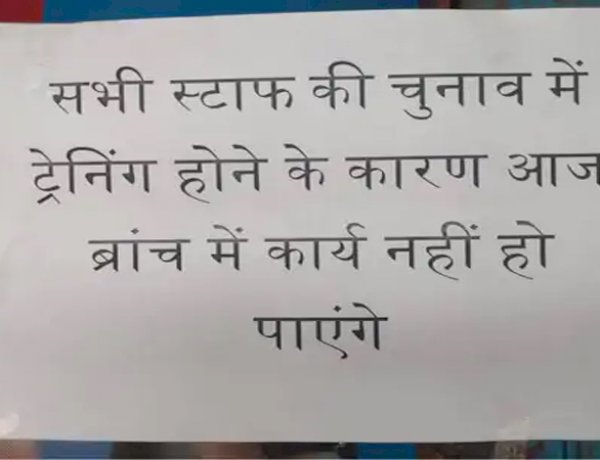 सभी स्टाफ की चुनाव में
ट्रेनिंग होने के कारण आज
ब्रांच में कार्य नहीं हो
पाएंगे